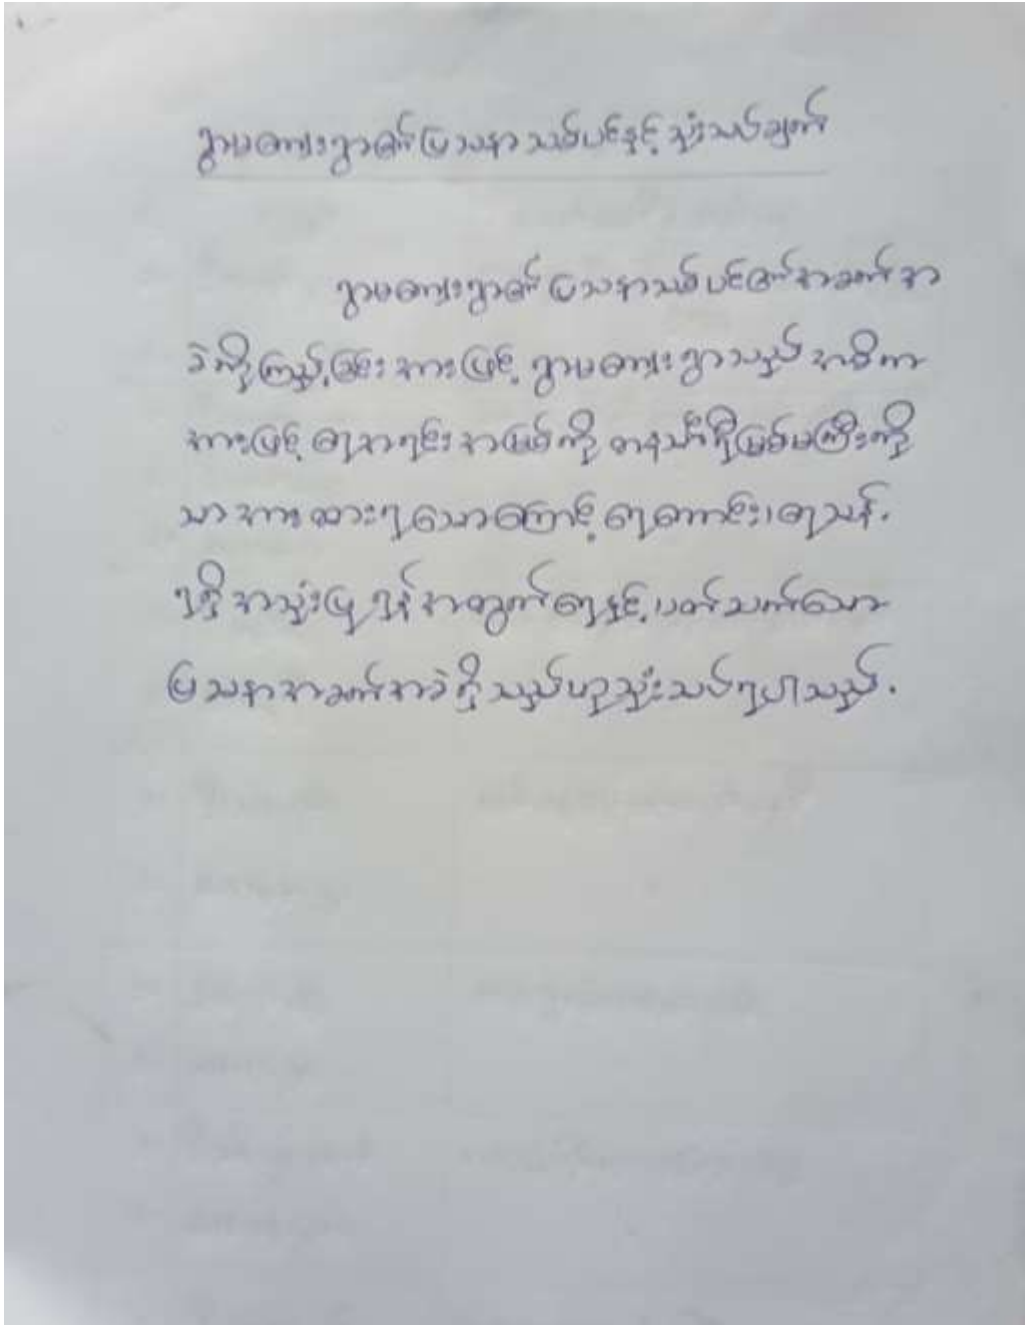 ရွာမကျေးရွာ၏ ပြဿနာသစ်ပင်နှင့် သုံးသပ်ချက်
ရွာမကျေးရွာ၏ ပြဿနာသစ်ပင်၏ အခက်အ
ခဲကို ကြည့်ခြင်းအားဖြင့် ရွာမကျေးရွာသည် အဓိက
အားဖြင့် ရေအရင်းအမြစ်ကို တနင်္သာရီမြစ်မကြီးကို
သာ အားထားရသောကြောင့် ရေကောင်း၊ ရေသန့်
ရရှိ အသုံးပြုရန်အတွက် ရေနှင့်ပတ်သက်သော
ပြဿနာအခက်အခဲရှိသည်ဟု သုံးသပ်ရပါသည်.